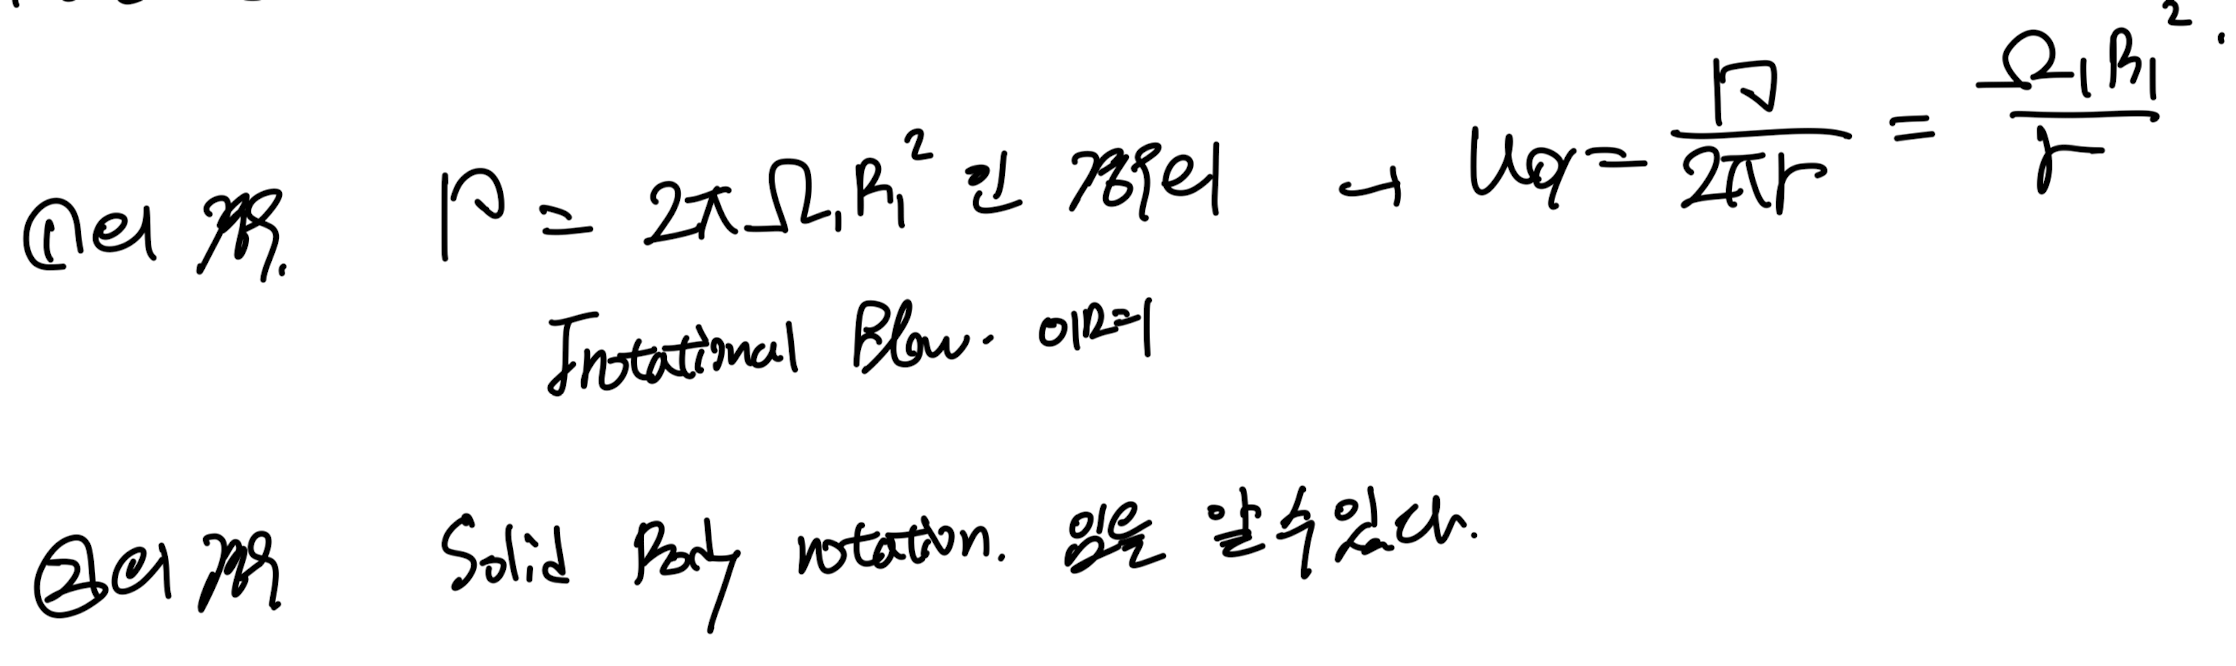 ①의 경우. Γ = 2π Ω₁R₁² 인 경우의 → uφ = Γ/2πr = Ω₁R₁²/r.
Irrotational Flow. 이며
②의 경우 Solid Body rotation. 임을 알 수 있다.